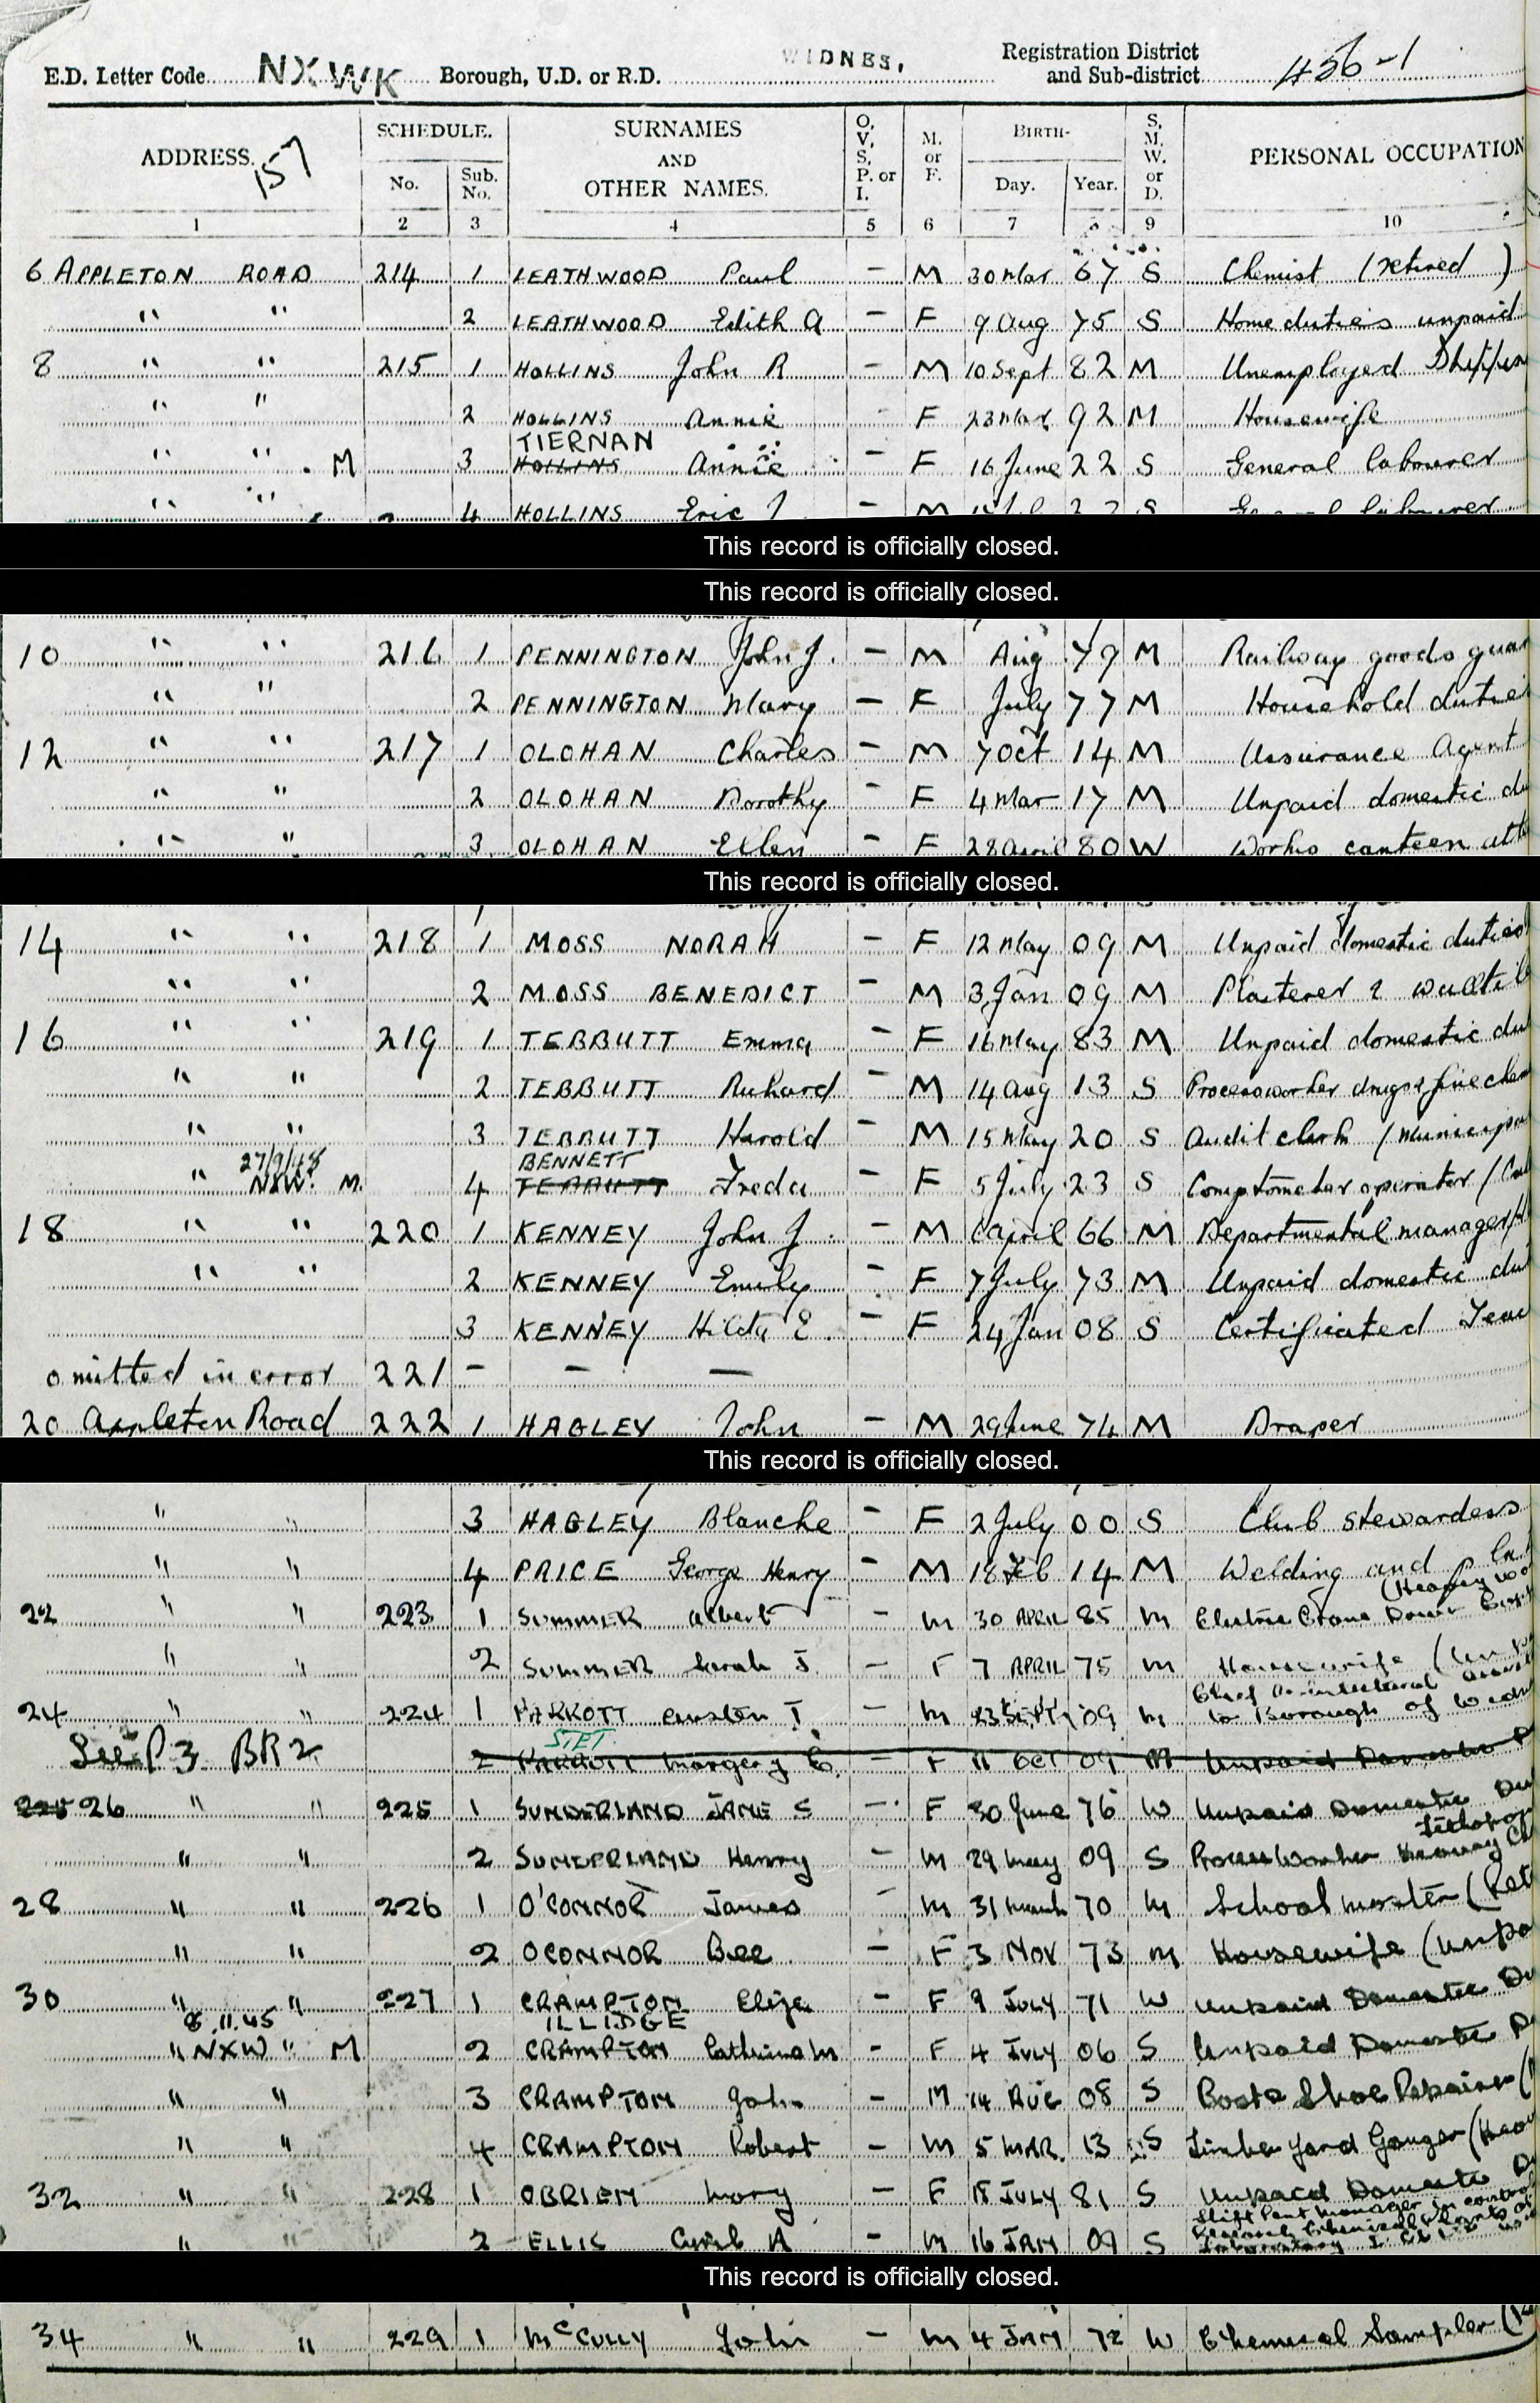 WIDNES.
E.D. Letter Code NXWK Borough, U.D. or R.D. Registration District and Sub-district 456-1
ADDRESS. 157 SCHEDULE. No. Sub. No. SURNAMES AND OTHER NAMES. O, V, S, P. or I. M. or F. BIRTH- Day. Year. S. M. W. or D. PERSONAL OCCUPATION
1 2 3 4 5 6 7 9 10
6 APPLETON ROAD 214 1 LEATHWOOD Paul - M 30 Mar 67 S Chemist (retired)
" " 2 LEATHWOOD Edith A - F 9 Aug 75 S Home duties unpaid
8 " " 215 1 HOLLINS John R - M 10 Sept 82 M Unemployed
" " 2 HOLLINS Annie - F 23 Mar 92 M Housewife
TIERNAN
" " M 3 HOLLINS Annie - F 16 June 22 S General labourer
" " 4 HOLLINS Eric J - M S General labourer
This record is officially closed.
This record is officially closed.
10 " " 216 1 PENNINGTON John J. - M Aug 79 M Railway goods guar
" " 2 PENNINGTON Mary - F July 77 M Household duties
12 " " 217 1 OLOHAN Charles - M 7 Oct 14 M Assurance Agent
" " 2 OLOHAN Dorothy - F 4 Mar 17 M Unpaid domestic du
" " 3 OLOHAN Ellen - F 28 April 80 W Works canteen att
This record is officially closed.
14 " " 218 1 MOSS NORAH - F 12 May 09 M Unpaid domestic duties
" " 2 MOSS BENEDICT - M 3 Jan 09 M Plasterer & wall til
16 " " 219 1 TEBBUTT Emma - F 16 May 83 M Unpaid domestic du
" " 2 TEBBUTT Richard - M 14 Aug 13 S Processworker drugs & fine chem
" " 3 TEBBUTT Harold - M 15 May 20 S Audit clerk (Municipa
27/9/48 BENNETT
" NXW. M. 4 TEBBUTT Freda - F 5 July 23 S Comptometer operator
18 " " 220 1 KENNEY John J. - M 6 April 66 M Departmental manager
" " 2 KENNEY Emily - F 7 July 73 M Unpaid domestic dut
3 KENNEY Hilda E. - F 24 Jan 08 S Certificated Teac
omitted in error 221 - - -
20 Appleton Road 222 1 HAGLEY John - M 29 June 74 M Draper
This record is officially closed.
" " 3 HAGLEY Blanche - F 2 July 00 S Club stewardess
" " 4 PRICE George Henry - M 18 Feb 14 M Welding and
(Heavy wo
22 " " 223 1 SUMMER Albert - M 30 APRIL 85 M Electric Crane
" " 2 SUMMER Sarah J. - F 7 APRIL 75 M Housewife
24 " " 224 1 PARROTT J. - M 23 SEPT 09 M Chief Architectural to Borough of Widn
STET
See P 3 BR 2 2 PARROTT Margery E. - F 11 OCT 09 M Unpaid Domestic
26 " " 225 1 SUNDERLAND JANE S - F 30 June 76 W Unpaid Domestic Du
" " 2 SUNDERLAND Henry - M 29 May 09 S Process Worker Heavy Ch
28 " " 226 1 O'CONNOR James - M 31 March 70 M School master (Ret
" " 2 OCONNOR - F 3 NOV 73 M Housewife (unpa
30 " " 227 1 CRAMPTON Eliza - F 9 JULY 71 W Unpaid Domestic Du
8.11.45 ILLIDGE
" NXW " M 2 CRAMPTON Cathrine M - F 4 JULY 06 S Unpaid Domestic D
" " 3 CRAMPTON John - M 14 AUG 08 S Boot & Shoe Repairer
" " 4 CRAMPTON Robert - M 5 MAR. 13 S Timber Yard Ganger (Heav
32 " " 228 1 OBRIEN Mary - F 18 JULY 81 S Unpaid Domestic Du
" " 2 ELLIS Cyril A - M 16 JAN 09 S Shift Plant Manager in control
This record is officially closed.
34 " " 229 1 McCULLY John - M 4 JAN 72 W Chemical Sampler